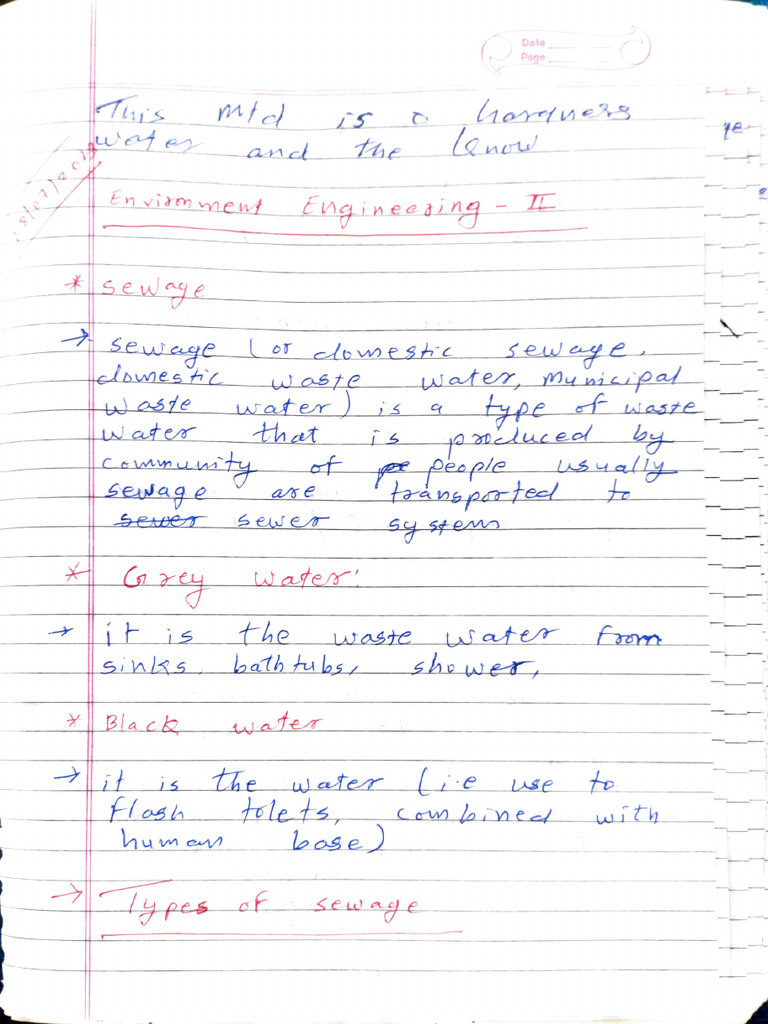 Date
Page
This mtd is a hardness
water and the know
Envirnment Engineering - II
* sewage
→ sewage (or domestic sewage,
domestic waste water, municipal
waste water) is a type of waste
water that is produced by
community of people usually
sewage are transported to
sewer sewer system
* Grey water:
→ it is the waste water from
sinks, bathtubs, shower,
* Black water
→ it is the water (i.e use to
flash tolets, combined with
human base)
→ Types of sewage